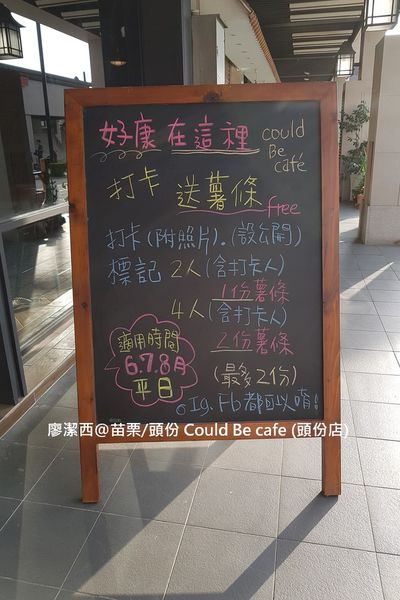 好康在這裡 could Be café
打卡 送薯條 free
打卡(附照片).(設公開)
標記 2人(含打卡人)
1份薯條
4人(含打卡人)
2份薯條
(最多2份)
適用時間
6.7.8月
平日
Ig. Fb都可以唷!
廖潔西@苗栗/頭份 Could Be cafe (頭份店)